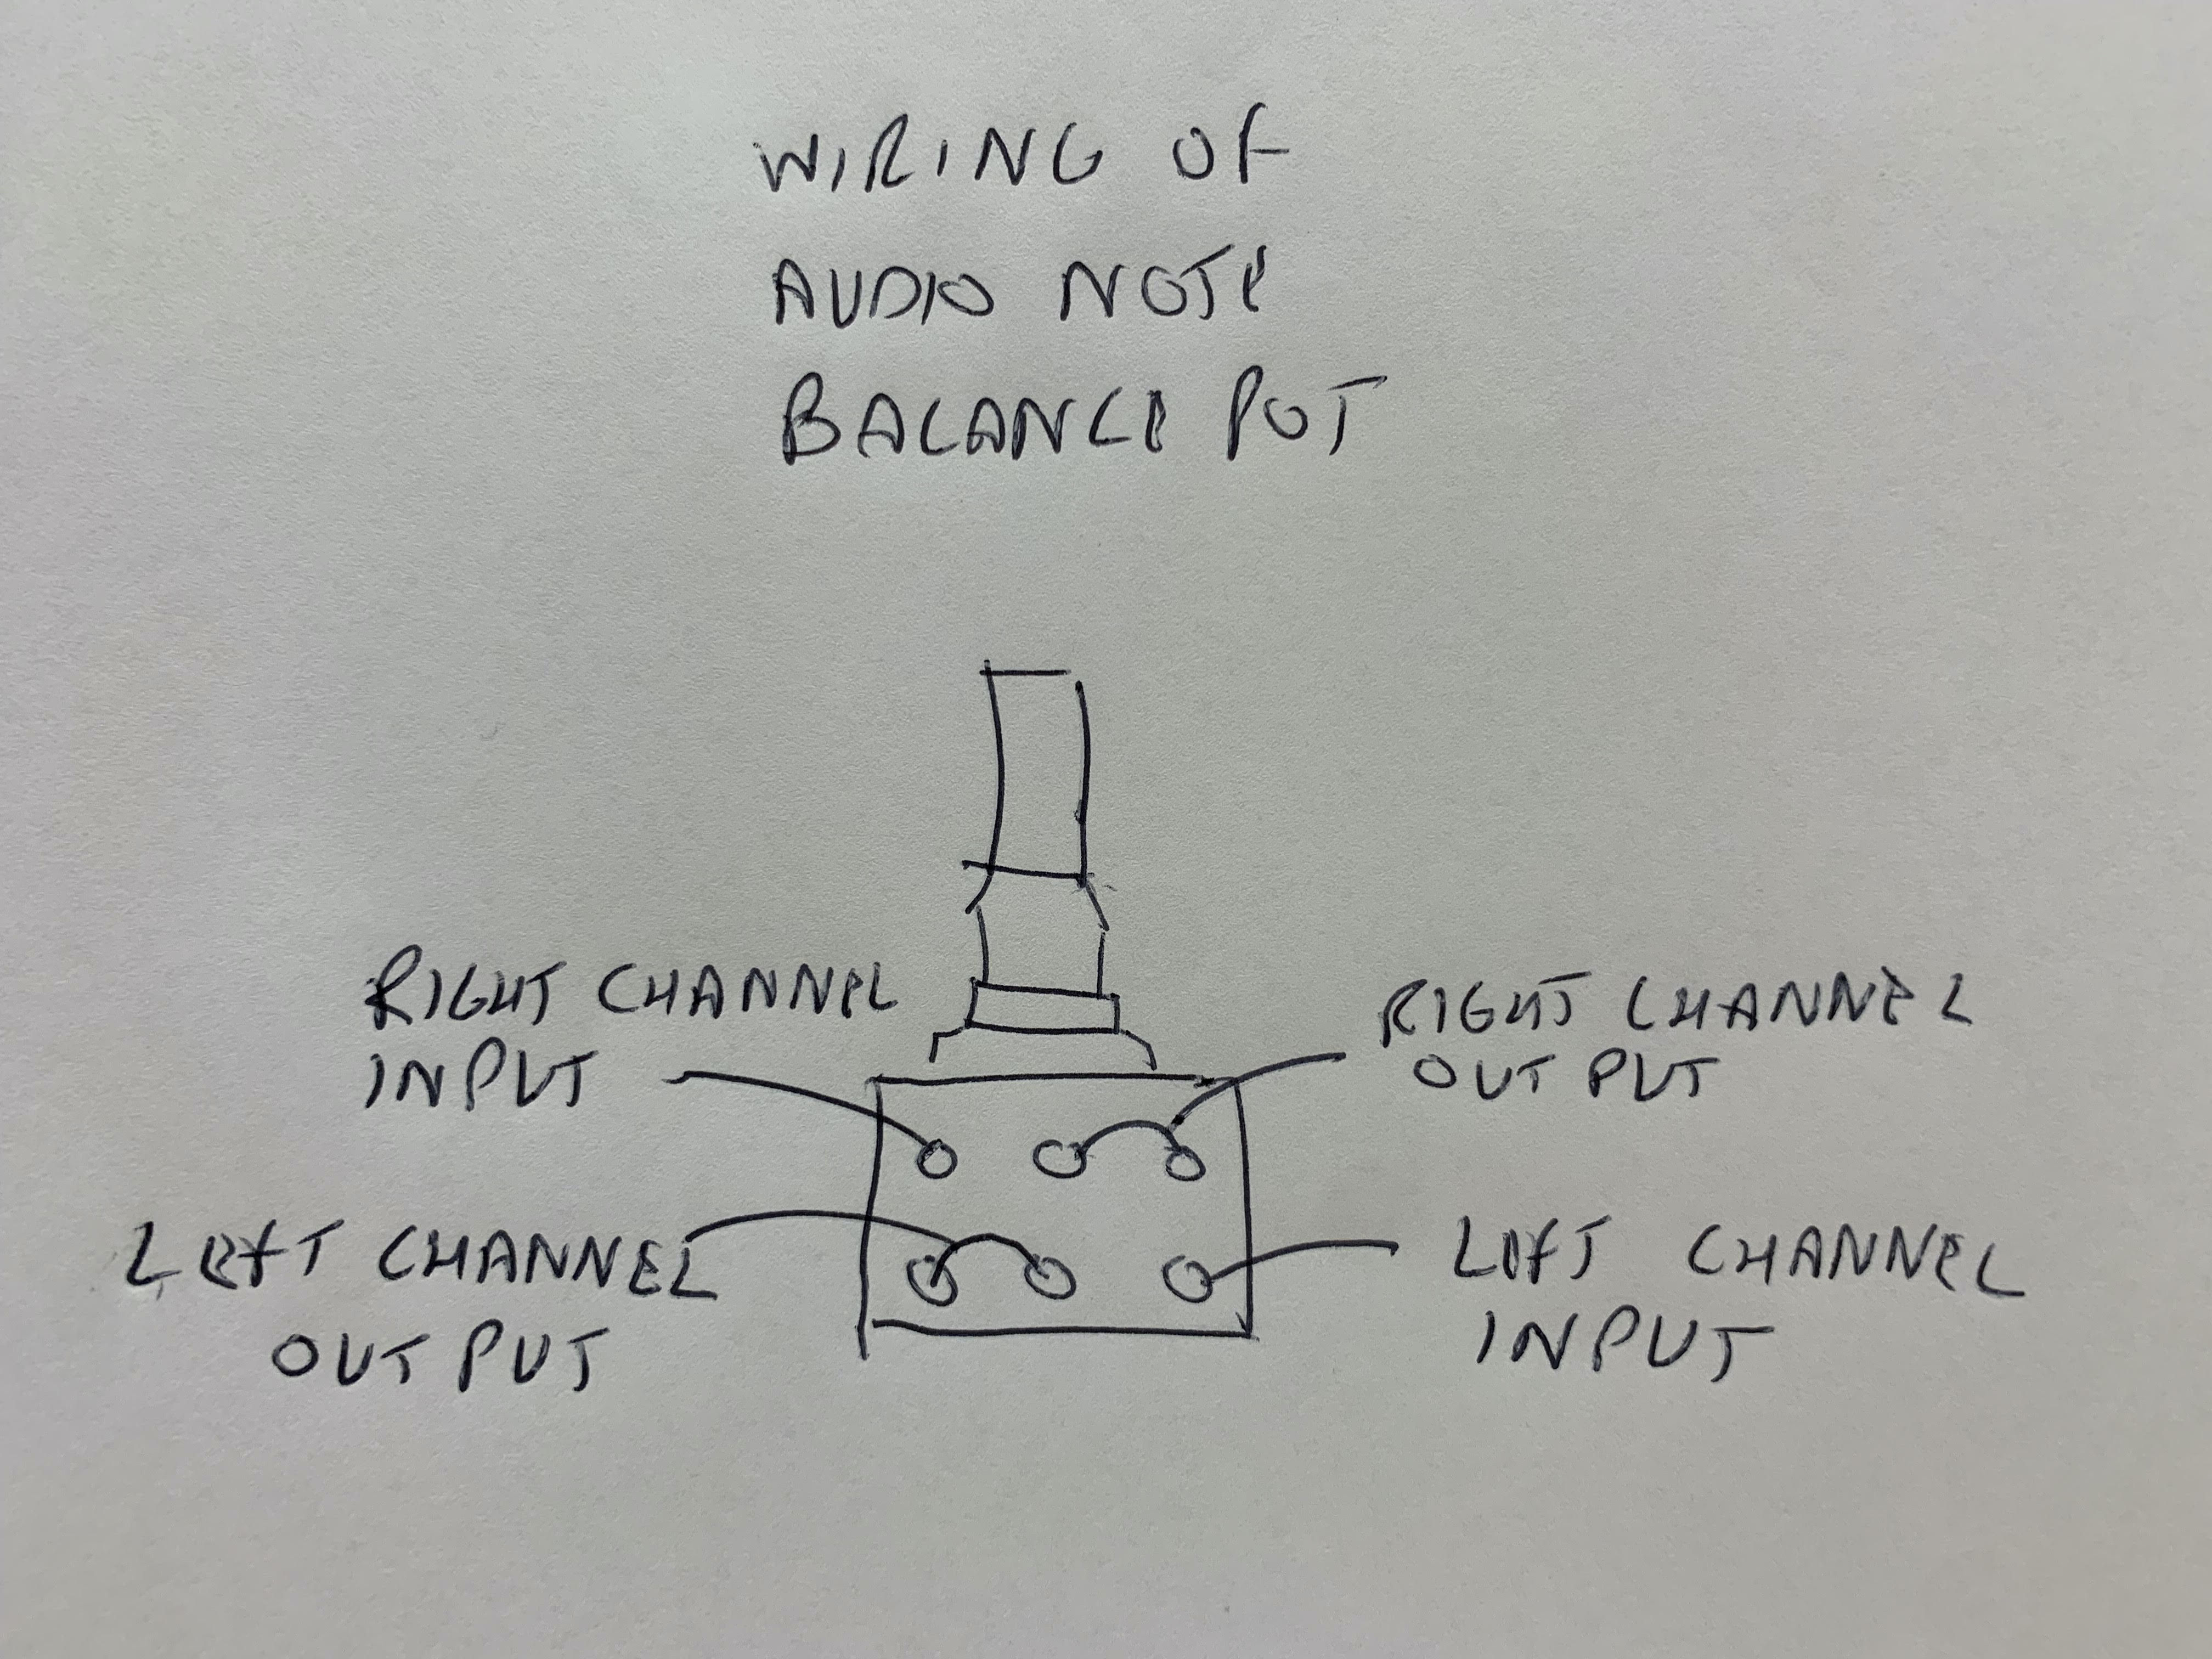 WIRING OF
AUDIO NOTE
BALANCE POT
RIGHT CHANNEL
INPUT
RIGHT CHANNEL
OUTPUT
LEFT CHANNEL
OUTPUT
LEFT CHANNEL
INPUT